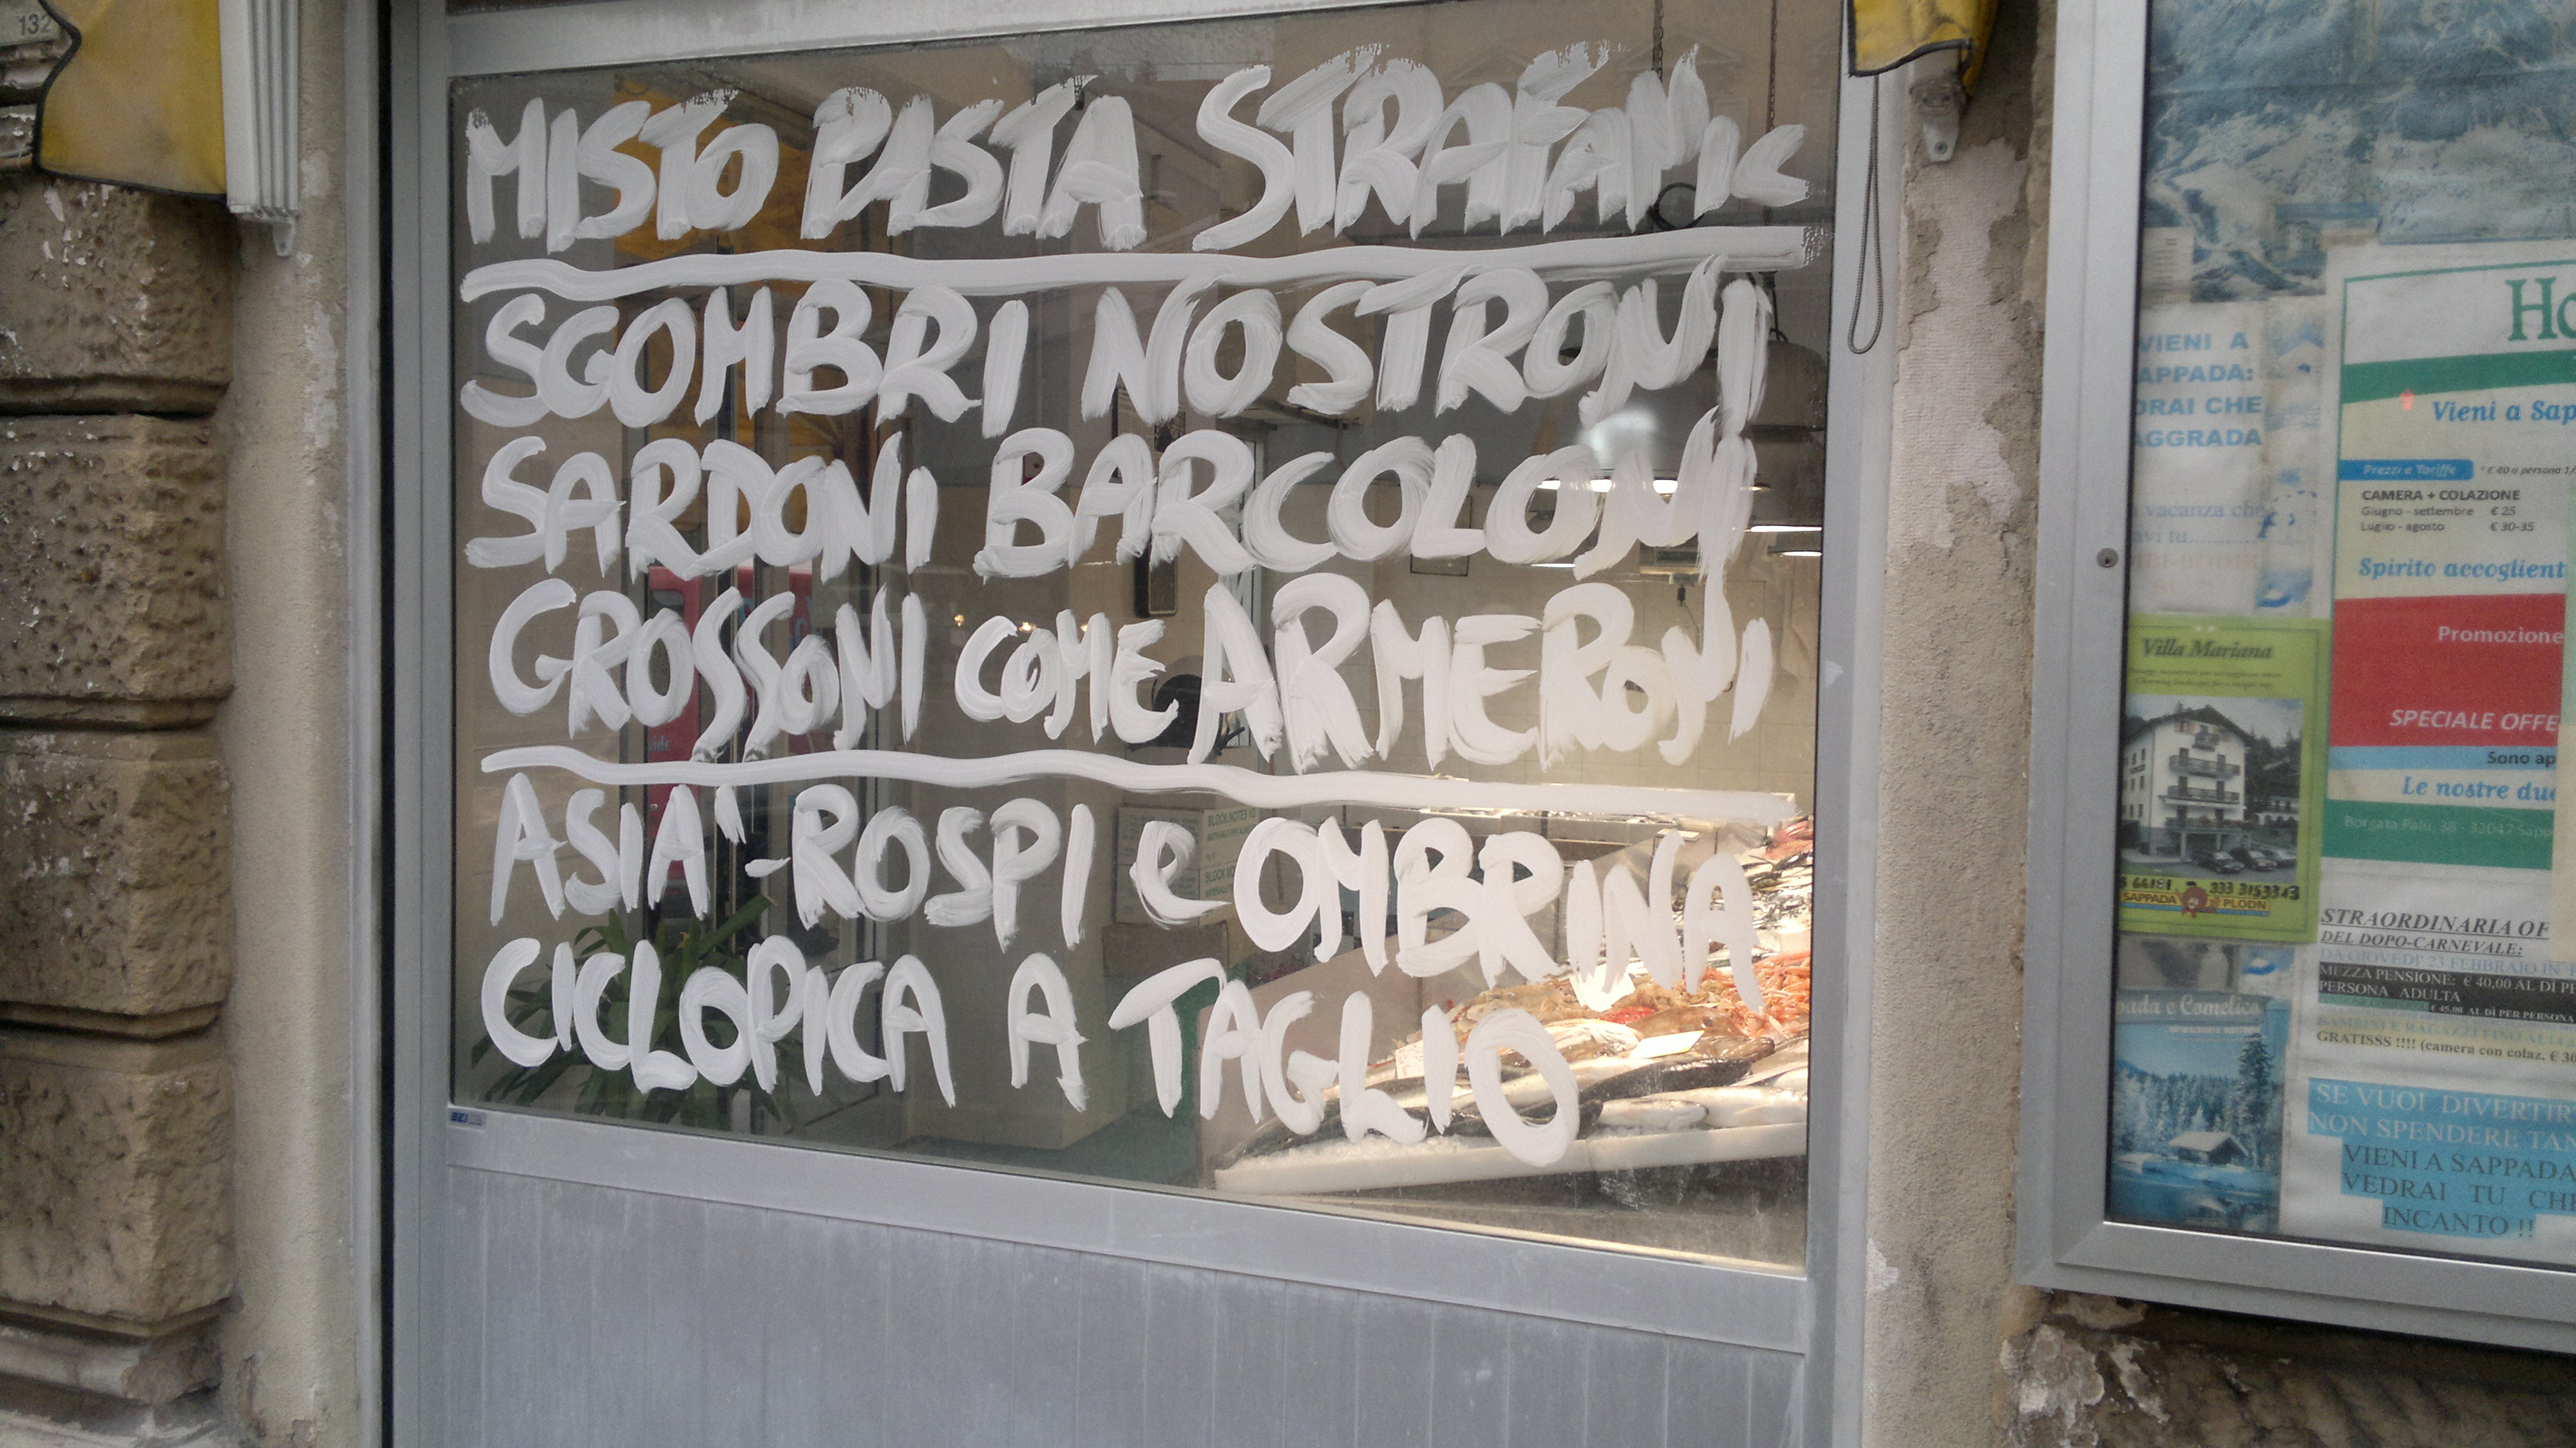 132
MISTO PASTA STRAFANIC
SGOMBRI NOSTRONI
SARDONI BARCOLONI
GROSSONI COME ARMERONI
ASIA' - ROSPI e OMBRINA
CICLOPICA A TAGLIO
BLOCK NOTES
BLOCK NOTES
VIENI A
APPADA:
DRAI CHE
AGGRADA
vacanza che
avi tu..........
Villa Mariana
66181 333 3153343
SAPPADA PLODN
pada e Comelico
Ho
Vieni a Sap
Prezzi e Tariffe * € 40 a persona
CAMERA + COLAZIONE
Giugno - settembre € 25
Luglio - agosto € 30-35
Spirito accoglient
Promozione
SPECIALE OFFE
Sono ap
Le nostre due
Borgata Palù, 38 - 32047 Sapp
STRAORDINARIA OF
DEL DOPO-CARNEVALE:
DA GIOVEDI' 23 FEBBRAIO IN
MEZZA PENSIONE: € 40,00 AL DÌ PE
PERSONA ADULTA
€ 45,00 AL DÌ PER PERSONA
BAMBINI E RAGAZZI FINO AI
GRATISSS !!!! (camera con colaz. € 30
SE VUOI DIVERTIR
NON SPENDERE TAN
VIENI A SAPPADA
VEDRAI TU CHE
INCANTO !!